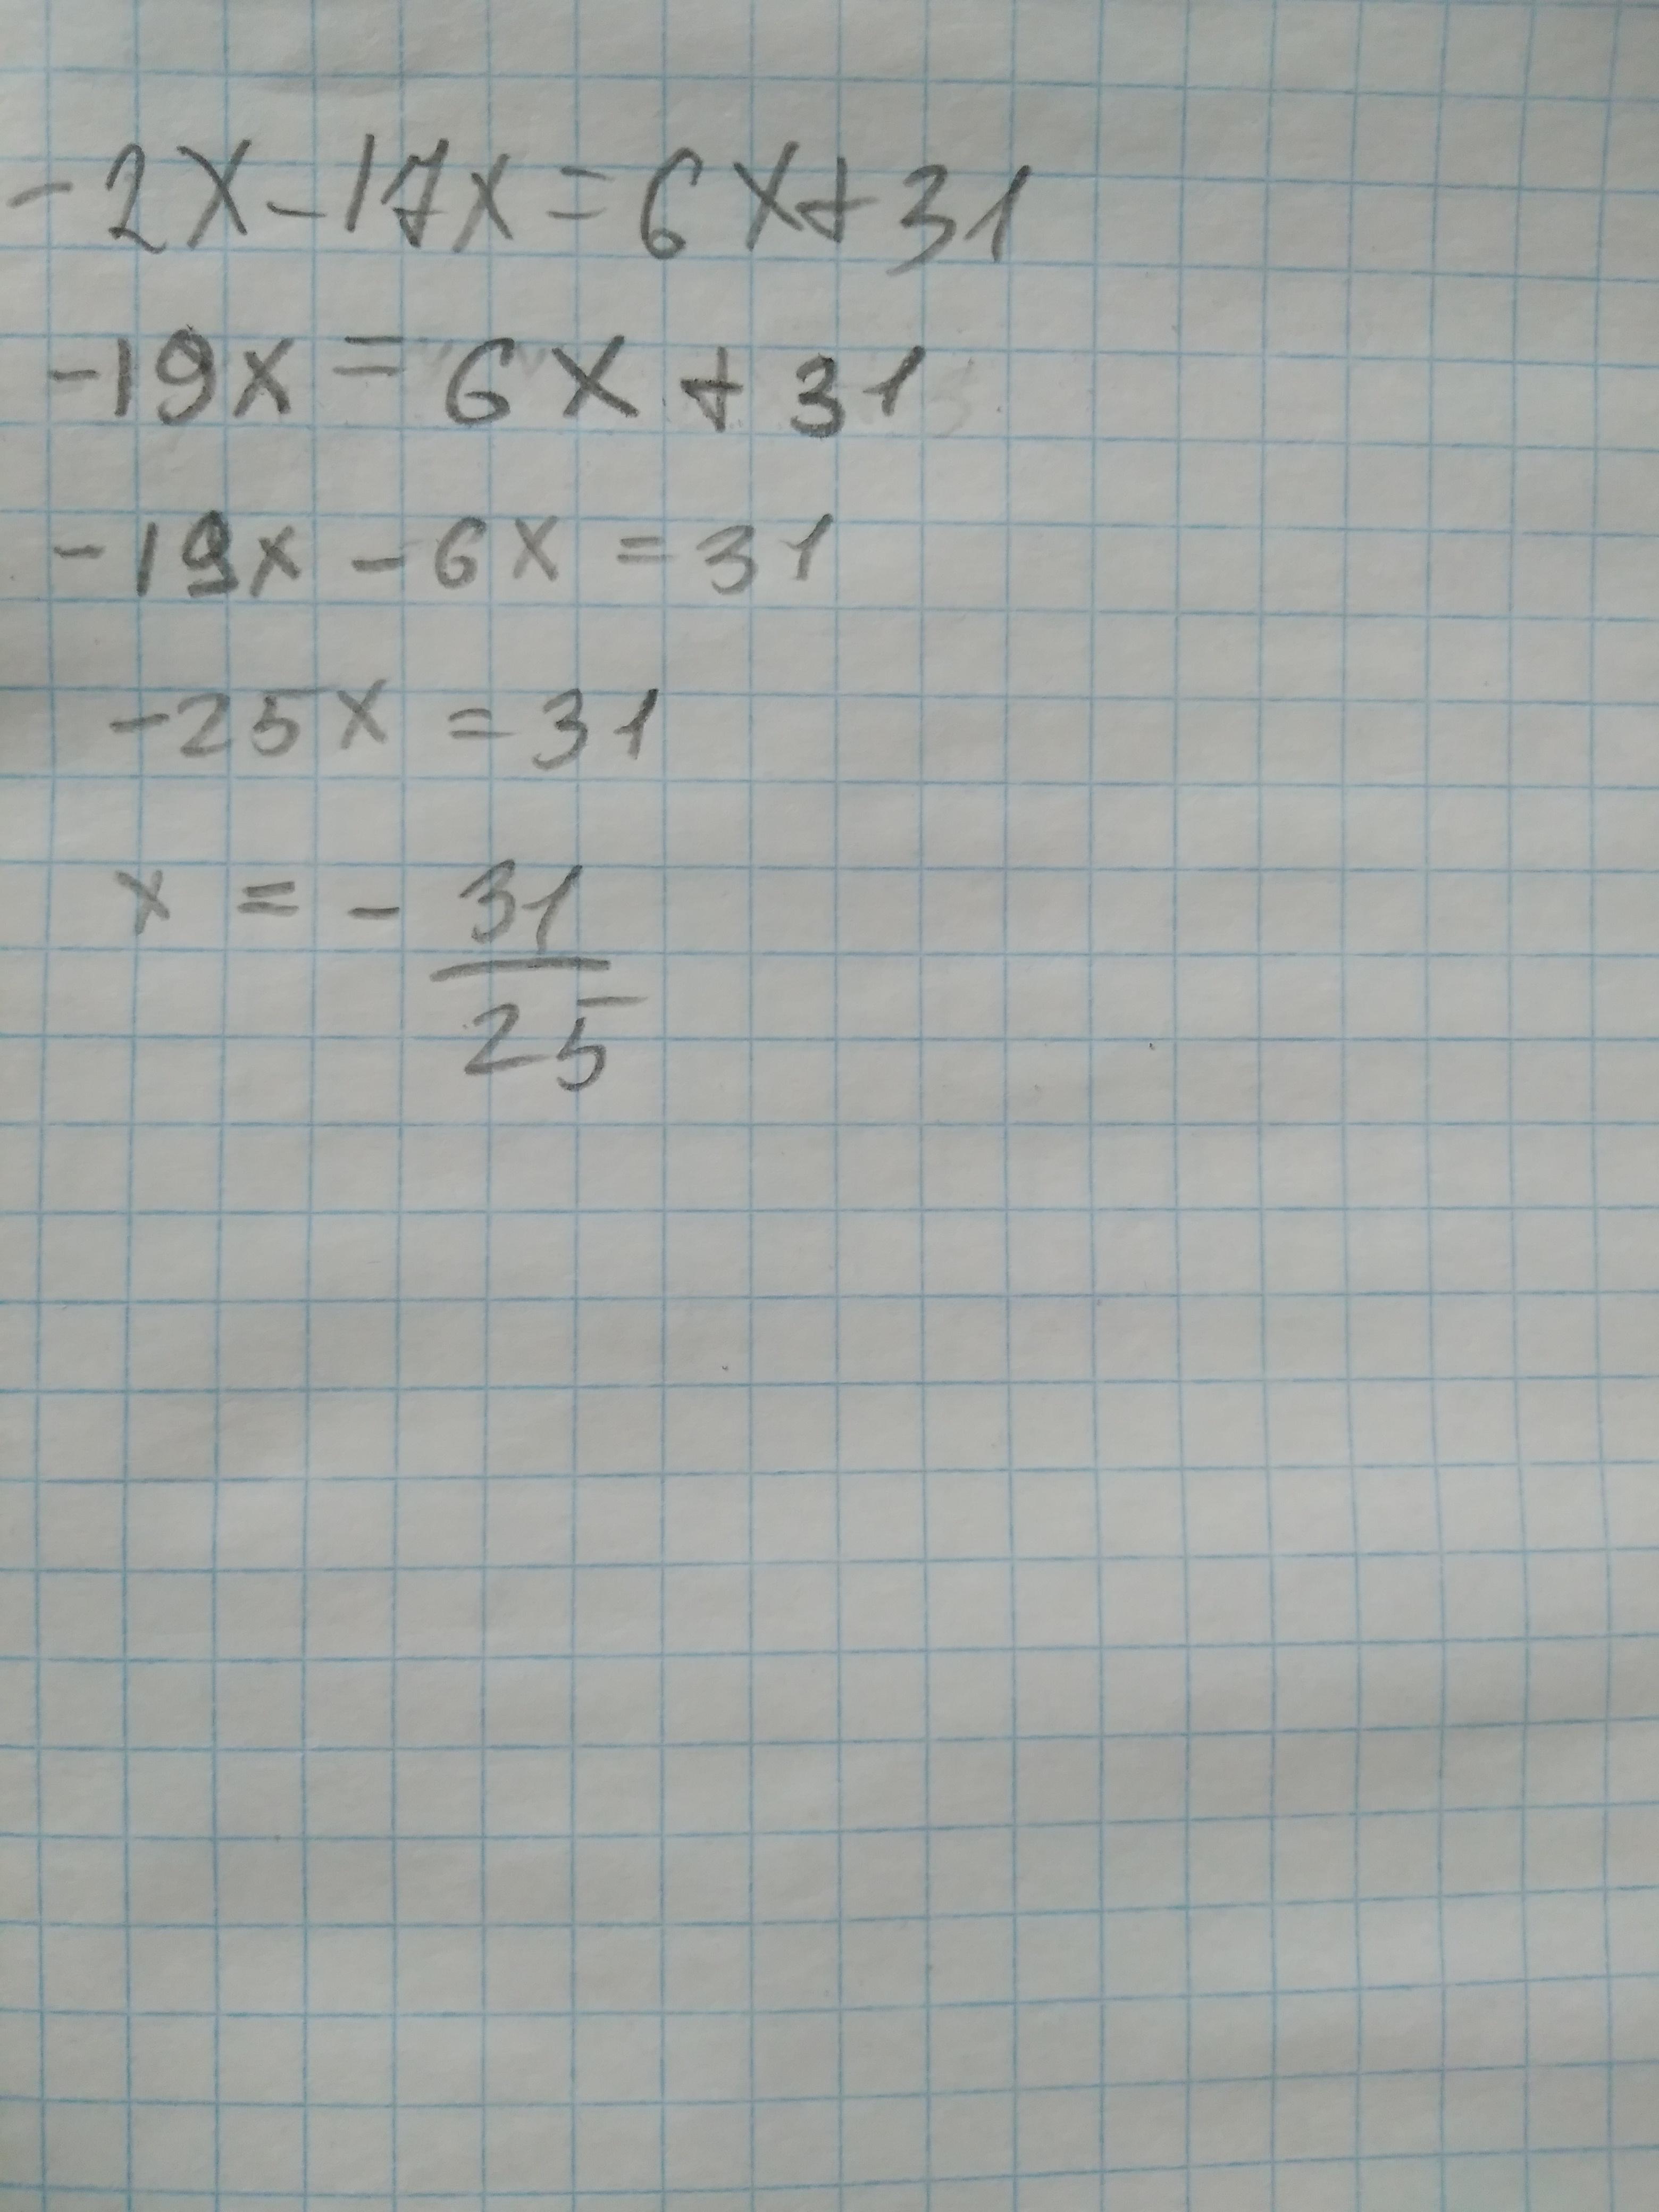 -2x-17x=6x+31
-19x=6x+31
-19x-6x=31
-25x=31
x=-31/25